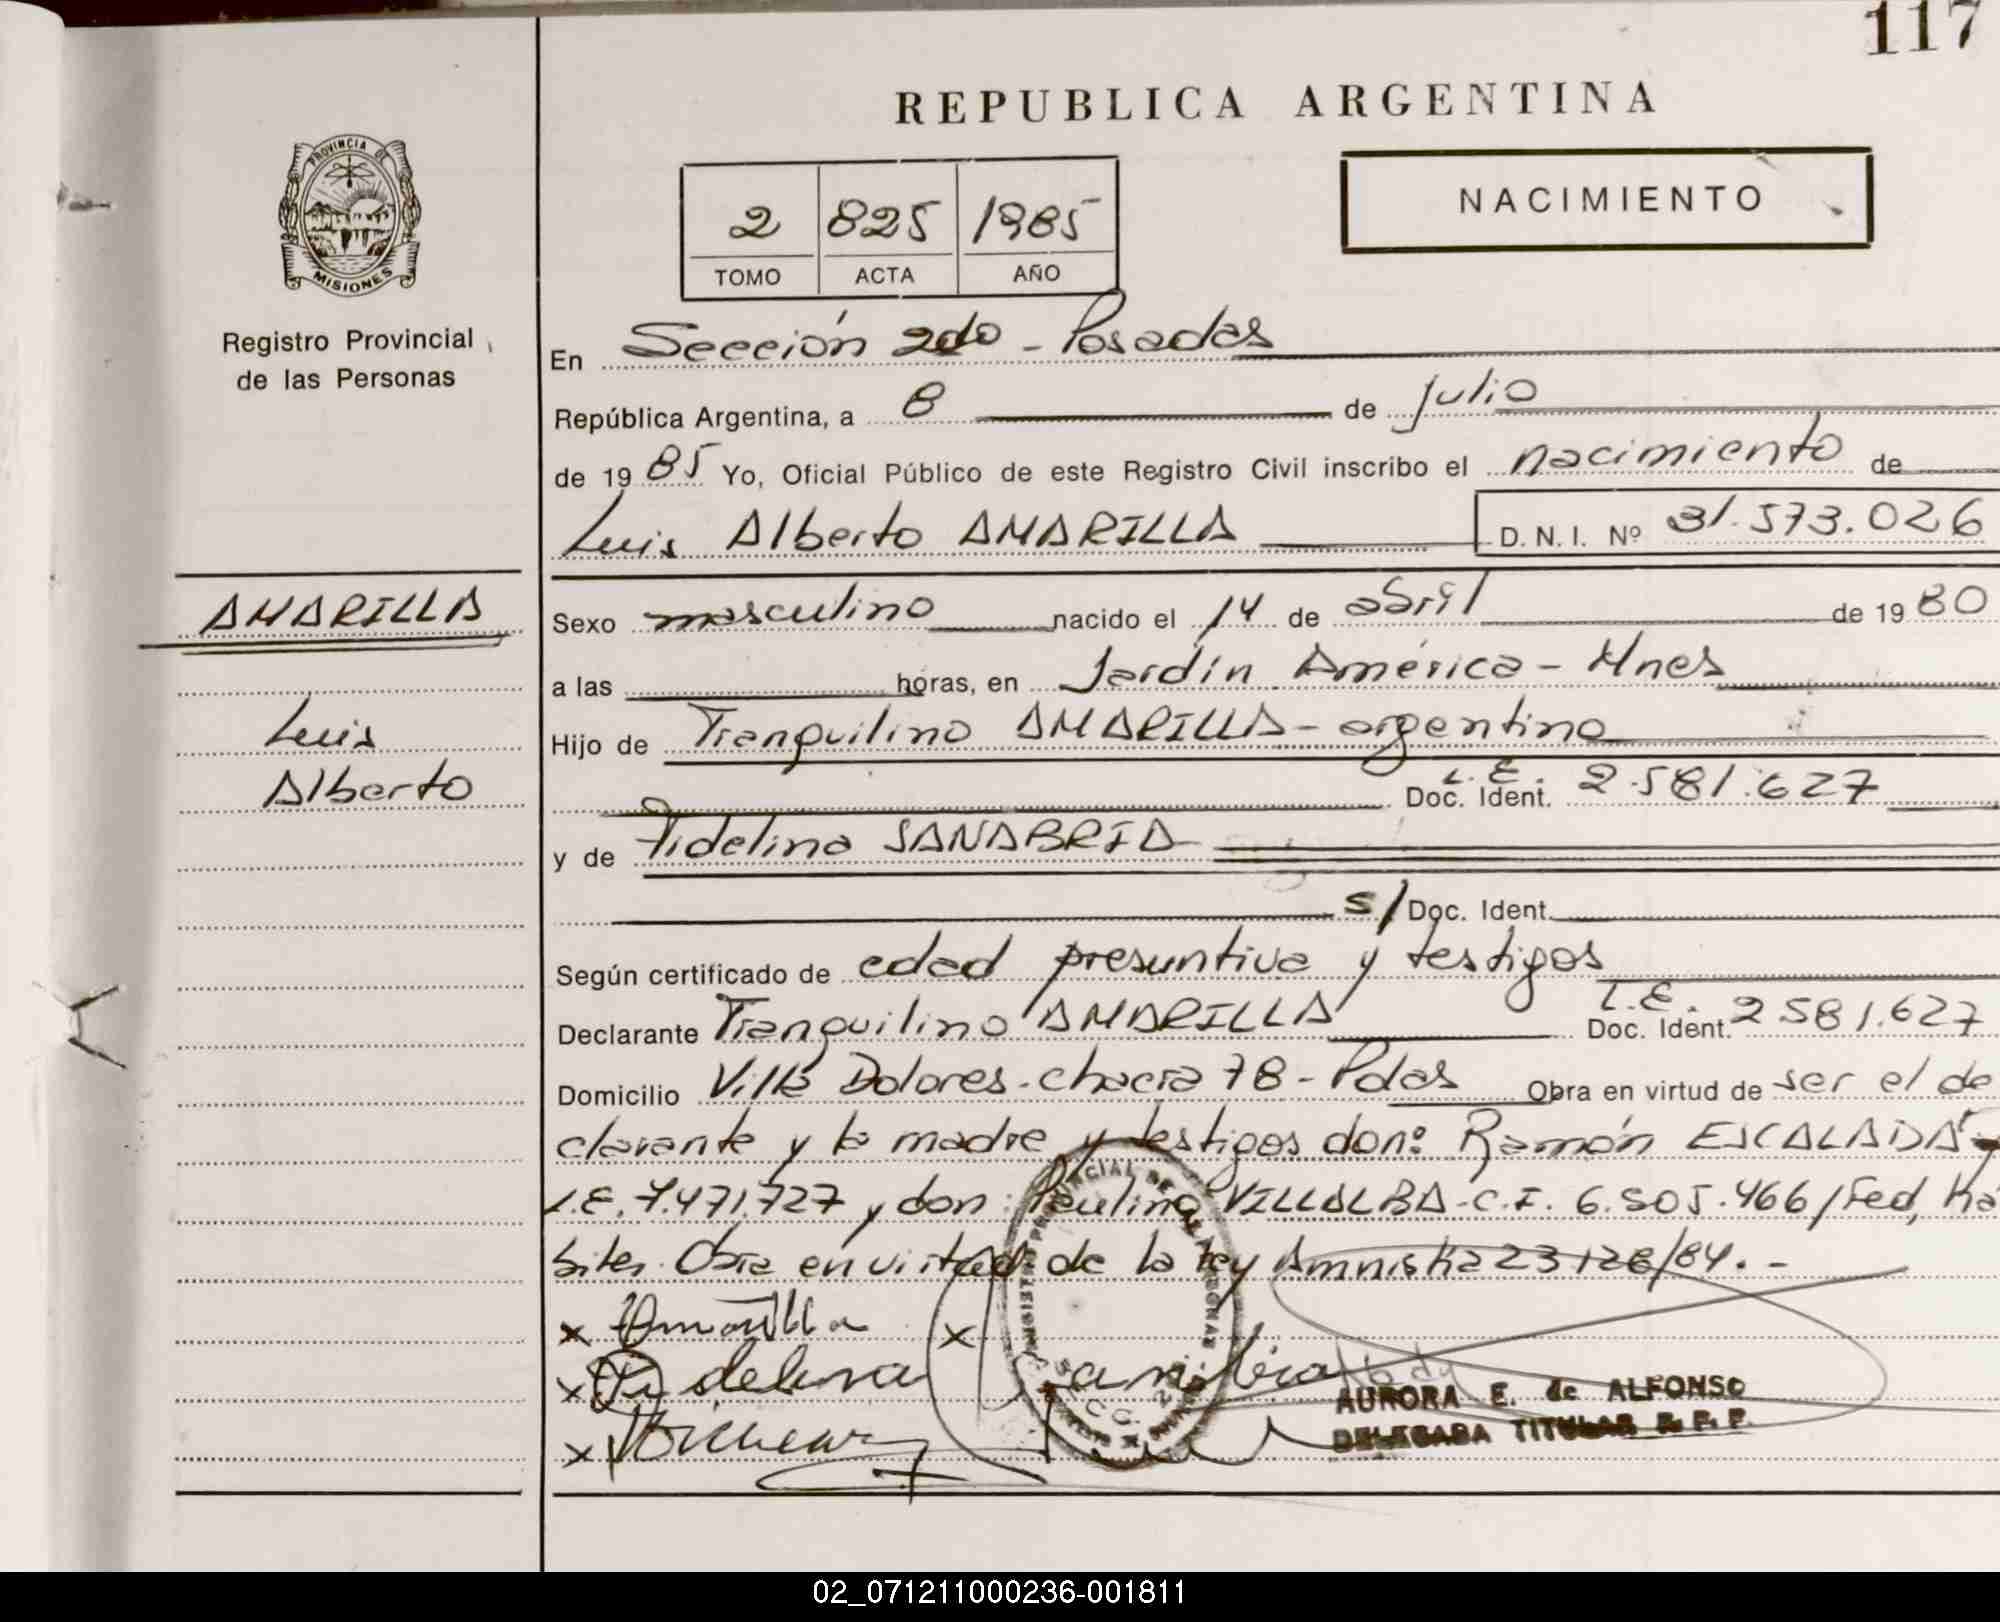 117
REPUBLICA ARGENTINA
PROVINCIA DE
MISIONES
2 825 1985
TOMO ACTA AÑO
NACIMIENTO
Registro Provincial
de las Personas
En Sección 2da - Posadas
República Argentina, a 8 de julio
de 1985 Yo, Oficial Público de este Registro Civil inscribo el nacimiento de
Luis Alberto AMARILLA D. N. I. Nº 31.573.026
AMARILLA
Luis
Alberto
Sexo masculino nacido el 14 de abril de 1980
a las horas, en Jardín América - Mnes
Hijo de Tranquilino AMARILLA - argentino
L.E.
Doc. Ident. 2.581.627
y de Fidelina SANABRIA
s/ Doc. Ident.
Según certificado de edad presuntiva y testigos
L.E.
Declarante Tranquilino AMARILLA Doc. Ident. 2581.627
Domicilio Villa Dolores - chacra 78 - Pdas Obra en virtud de ser el de
clarante y la madre y testigos don: Ramón ESCALADA
L.E. 7.471.727 y don: Paulino VILLALBA - C.I. 6.505.466/Fed, Há
biles. Obra en virtud de la ley Amnistía 23126/84. -
x Amarilla x
x Fidelina Sanabria
x
AURORA E. de ALFONSO
DELEGADA TITULAR R. P. P.
02_071211000236-001811